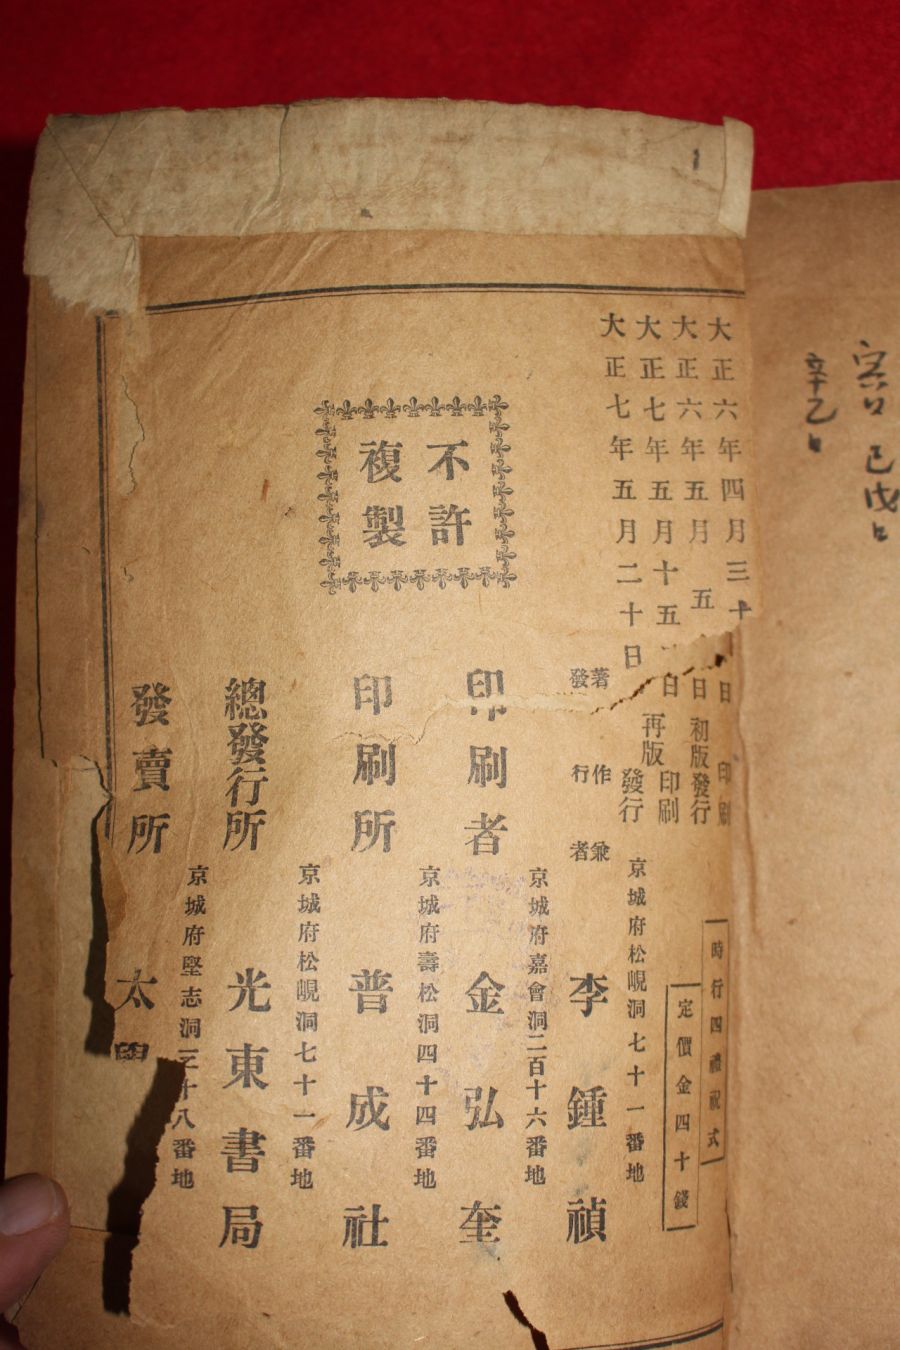 己戊
辛乙
大正六年四月三十日印刷
大正六年五月五日初版發行
大正七年五月十五日印刷
再版
大正七年五月二十日發行
時行四禮祝式
定價金四十錢
不許
複製
京城府松峴洞七十一番地
著作兼
發行者
李鍾禎
京城府嘉會洞二百十六番地
印刷者 金弘奎
京城府壽松洞四十四番地
印刷所 普成社
京城府松峴洞七十一番地
總發行所 光東書局
京城府堅志洞三十八番地
發賣所 太